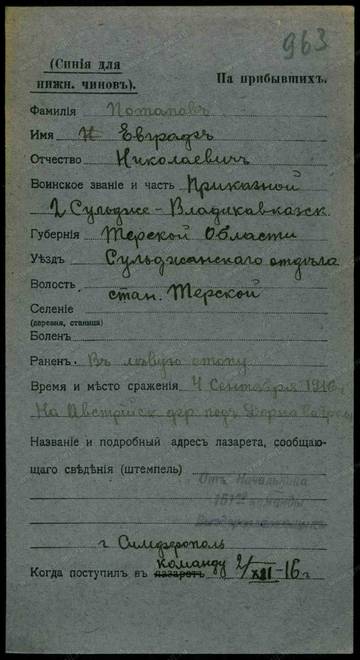 963
(Синія для
нижн. чиновъ).
На прибывшихъ.
Фамилія Потаповъ
Имя Евграфъ
Отчество Николаевичъ
Воинское званіе и часть Приказной
2 Сульдже-Владикавказск.
Губернія Терской Области
Уѣздъ Сульджанскаго отдѣла
Волость
стан. Терской
Селеніе
(деревня, станица)
Боленъ
Раненъ Въ лѣвую стопу
Время и мѣсто сраженія 4 Сентября 1916 г.
На Австрійск. фр. подъ
Названіе и подробный адресъ лазарета, сообщаю-
щаго свѣдѣнія (штемпель)
Отъ Начальника
команды
г Симферополь
команду
Когда поступилъ въ лазаретъ 2/XII-16 г